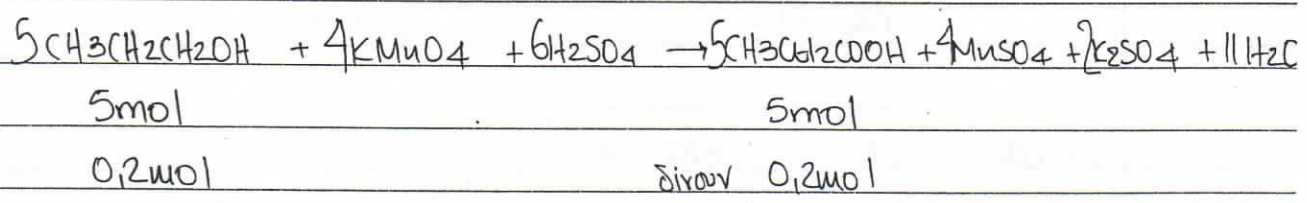 5CH3CH2CH2OH + 4KMnO4 + 6H2SO4 → 5CH3CH2COOH + 4MnSO4 + 2K2SO4 + 11H2C
5mol 5mol
0,2mol δίνουν 0,2mol